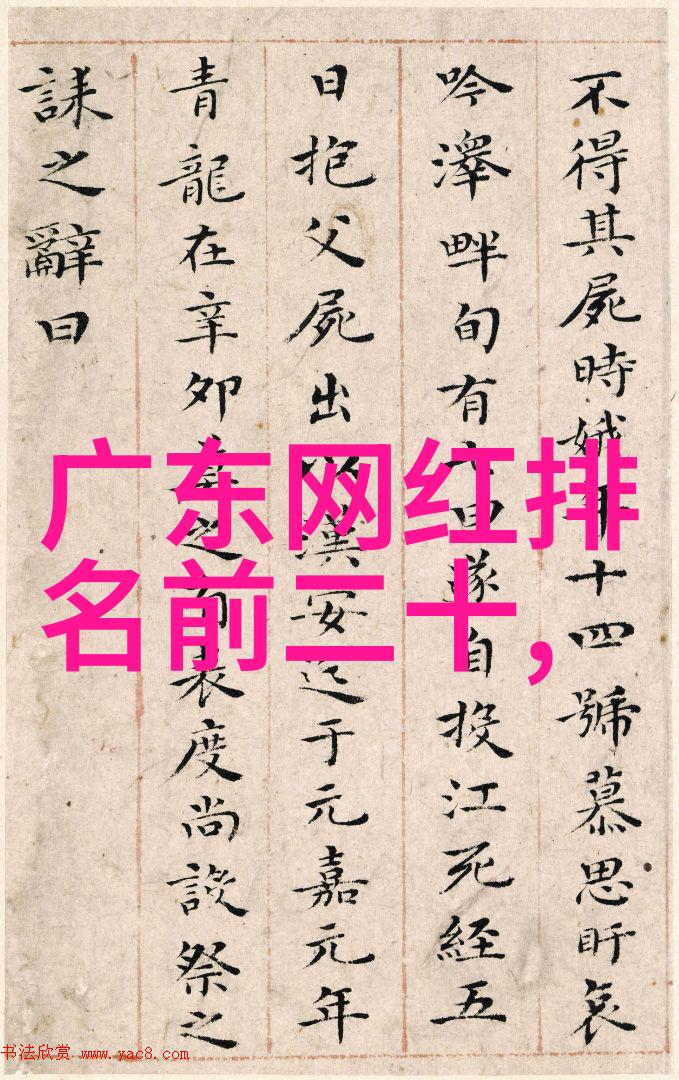 不得其屍時娥年十四號慕思盱哀
吟澤畔旬有七日遂自投江死經五
日抱父屍出以漢安迄于元嘉元年
青龍在辛卯莫之有表度尚設祭之
誄之辭曰
广东网红排
名前二十,
书法欣赏 www.yac8.com